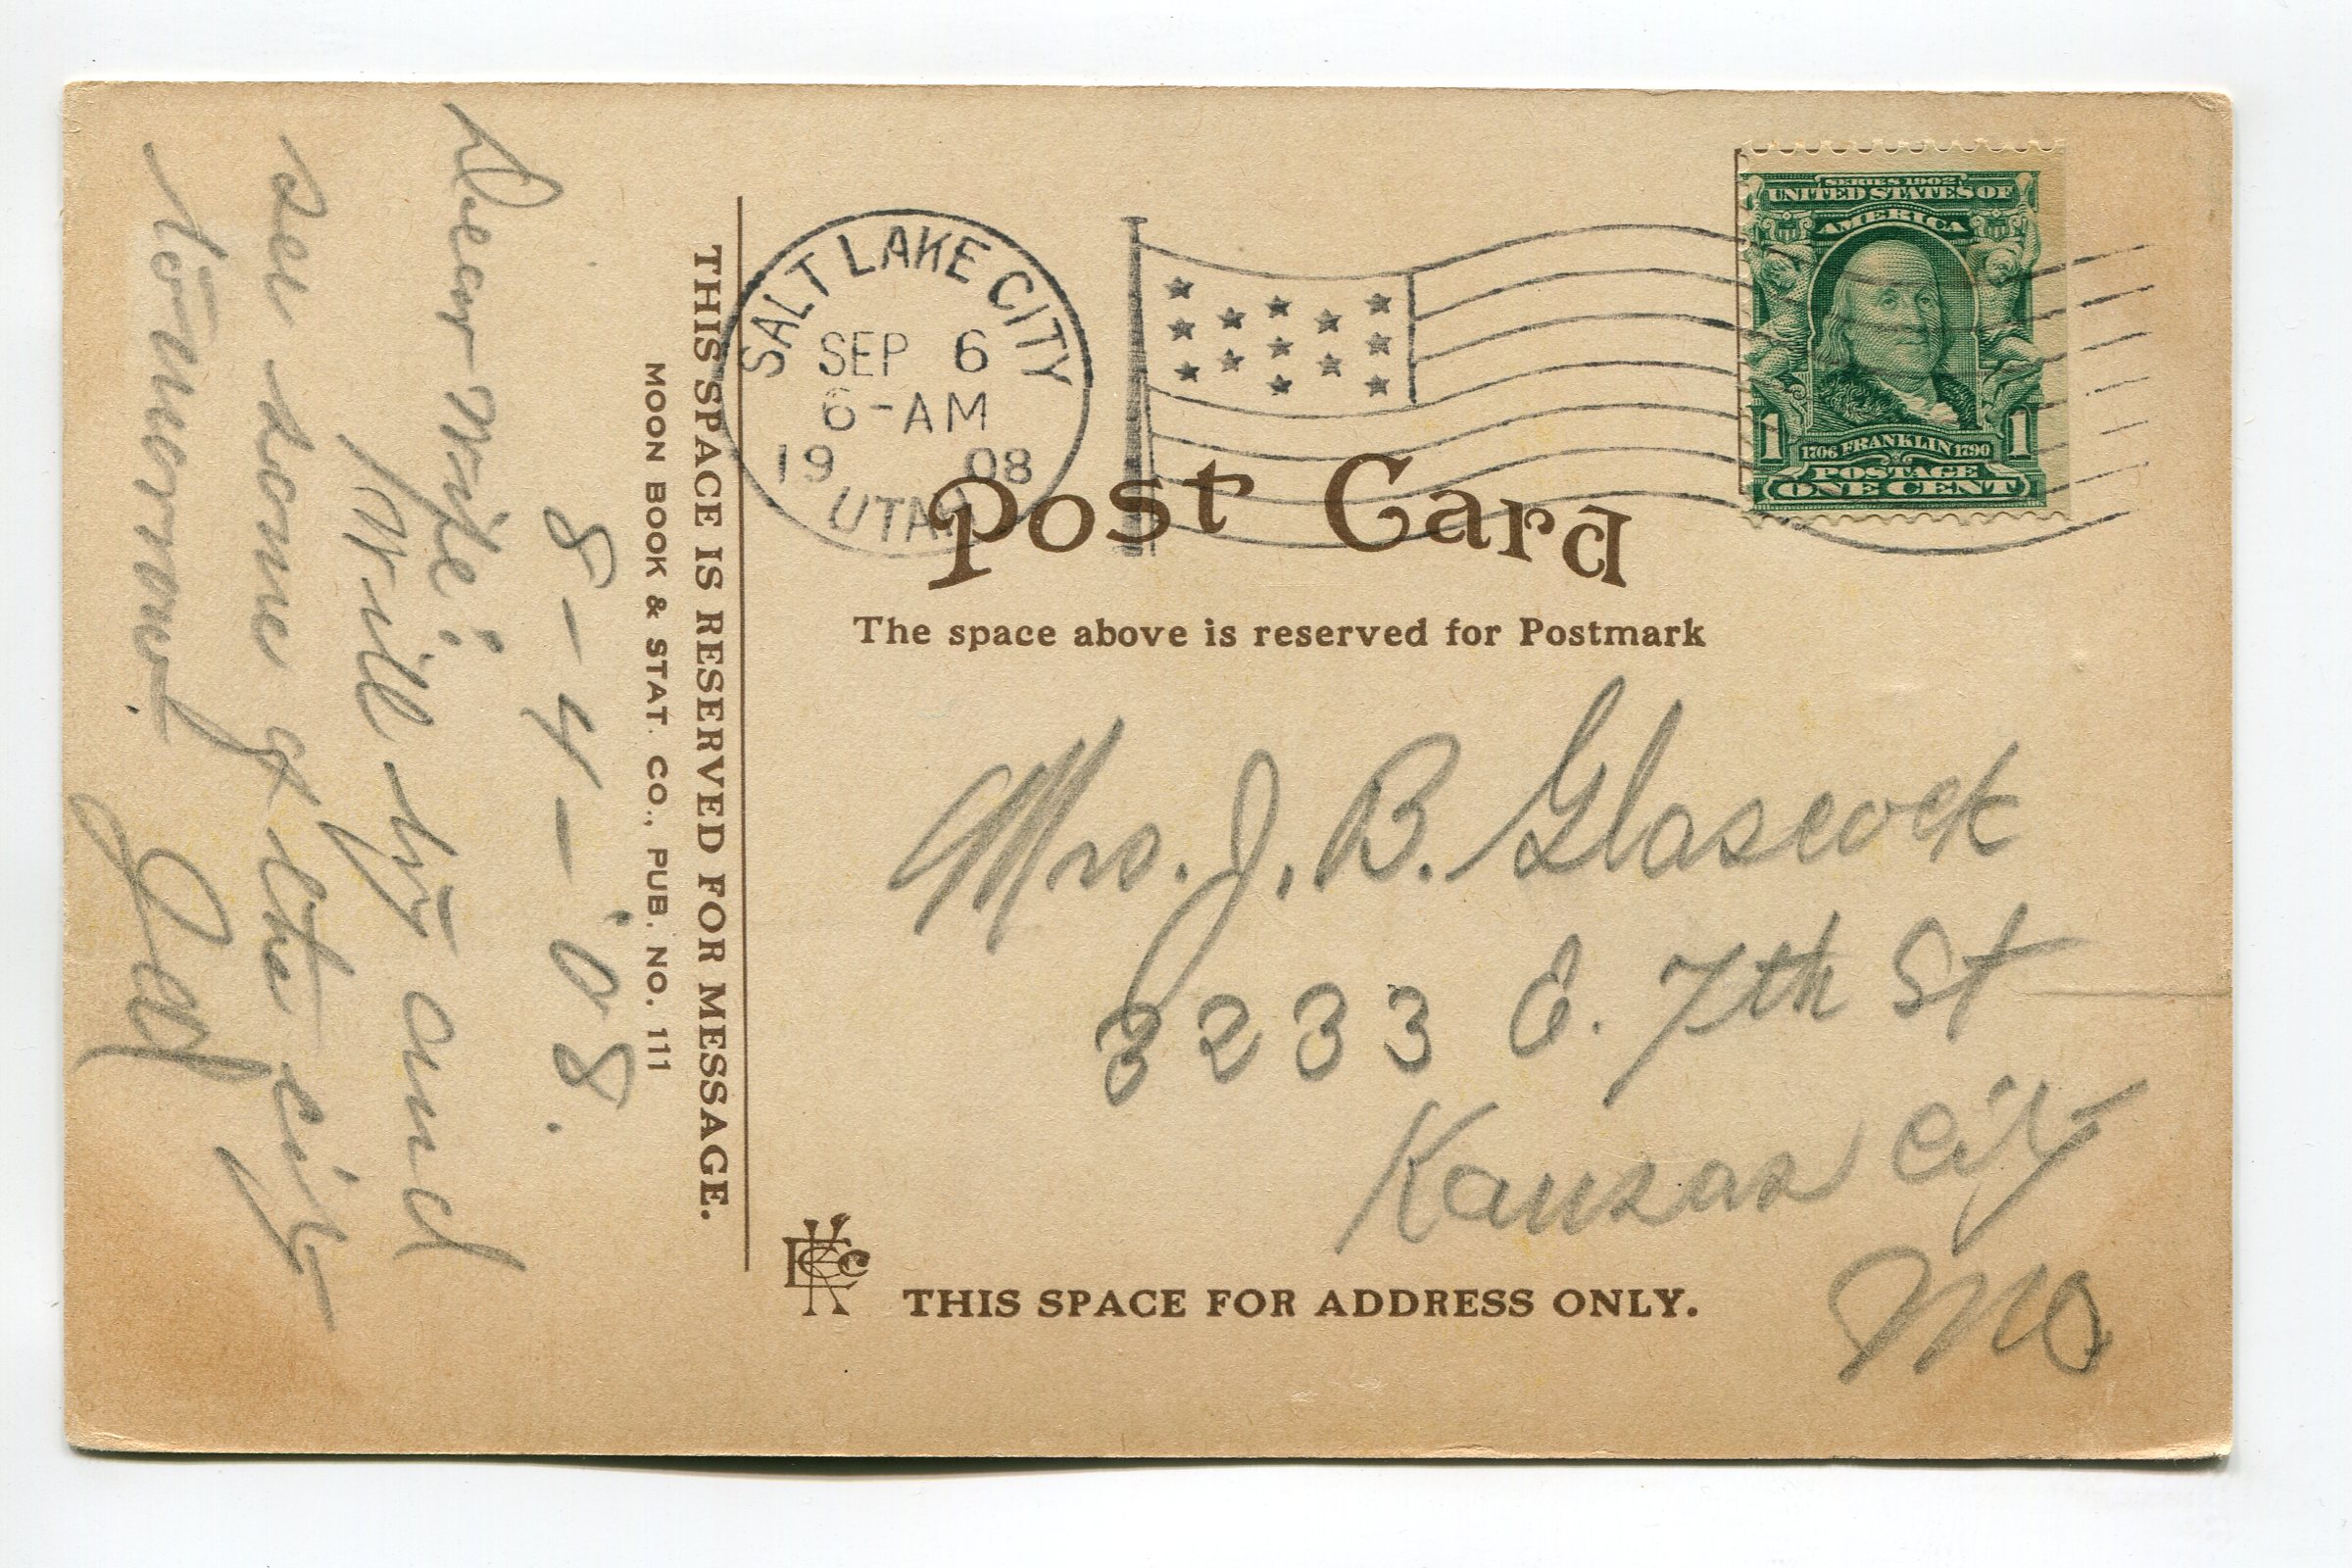 SALT LAKE CITY
SEP 6
6-AM
19 08
UTAH
SERIES 1902
UNITED STATES OF
AMERICA
1 1706 FRANKLIN 1790 1
POSTAGE
ONE CENT
Post Card
The space above is reserved for Postmark
THIS SPACE IS RESERVED FOR MESSAGE.
MOON BOOK & STAT. CO., PUB. NO. 111
8-4-'08.
Dear Wife:
Will try and
see some of the city
tomorrow.
Mrs. J. B. Glascock
3233 E. 7th St
Kansas City
Mo
THIS SPACE FOR ADDRESS ONLY.